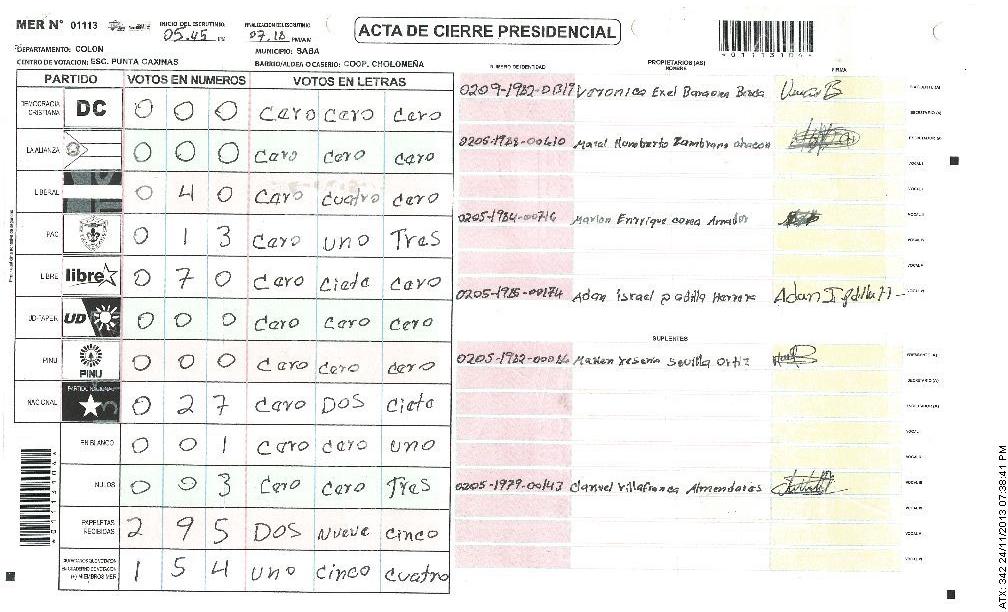 MER N° 01113
INICIO DEL ESCRUTINIO: 05.45 PM
FINALIZACION DEL ESCRUTINIO: 07,18 PM/AM
ACTA DE CIERRE PRESIDENCIAL
DEPARTAMENTO: COLON
MUNICIPIO: SABA
CENTRO DE VOTACION: ESC. PUNTA CAXINAS
BARRIO/ALDEA O CASERIO: COOP. CHOLOMEÑA
PARTIDO VOTOS EN NUMEROS VOTOS EN LETRAS
DEMOCRACIA CRISTIANA DC 0 0 0 cero cero cero
LA ALIANZA 0 0 0 cero cero cero
LIBERAL 0 4 0 cero cuatro cero
PAC 0 1 3 cero uno Tres
LIBRE libre 0 7 0 cero ciete cero
UD-FAPER UD 0 0 0 cero cero cero
PINU PINU 0 0 0 cero cero cero
NACIONAL PARTIDO NACIONAL 0 2 7 cero DOS ciete
EN BLANCO 0 0 1 cero cero uno
NULOS 0 0 3 cero cero Tres
PAPELETAS RECIBIDAS 2 9 5 DOS Nueve cinco
1 5 4 uno cinco cuatro
NUMERO DE IDENTIDAD
PROPIETARIOS (AS)
NOMBRE
FIRMA
Veronica
Humberto Zambrano
0205-1984-00716 Marlon Enrrique corea Amador
0205-1985-00174 Adan israel padilla Herrera
SUPLENTES
Sevilla Ortiz
0205-1979-00143 Villafranca Almendares
ATX: 342 24/11/2013 07:38:41 PM